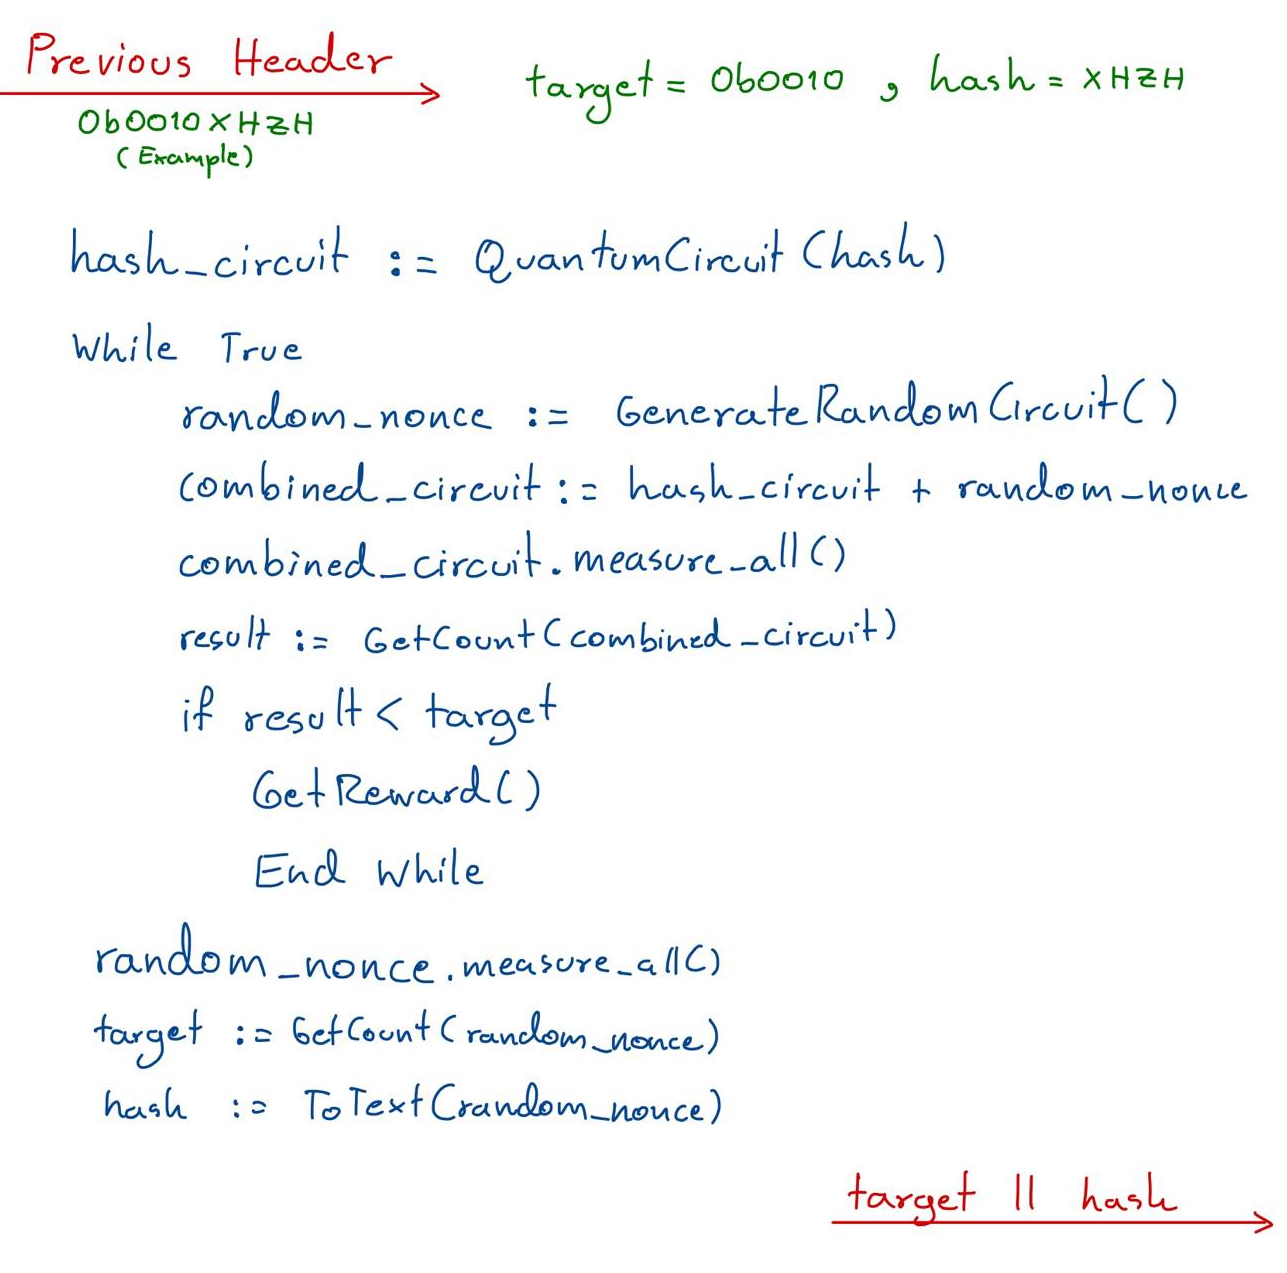 Previous Header
0b0010XHZH
(Example)
target = 0b0010 , hash = XHZH
hash_circuit := QuantumCircuit(hash)
While True
random_nonce := GenerateRandomCircuit()
combined_circuit := hash_circuit + random_nonce
combined_circuit.measure_all()
result := GetCount(combined_circuit)
if result < target
GetReward()
End While
random_nonce.measure_all()
target := GetCount(random_nonce)
hash := ToText(random_nonce)
target || hash